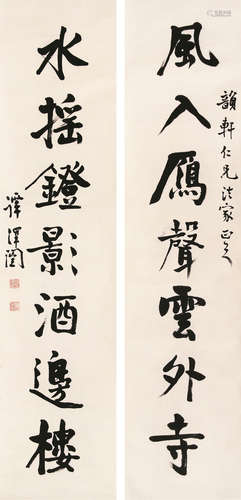 韻軒仁兄法家正之
風入鴈聲雲外寺
水摇鐙影酒邊樓
譚澤闓